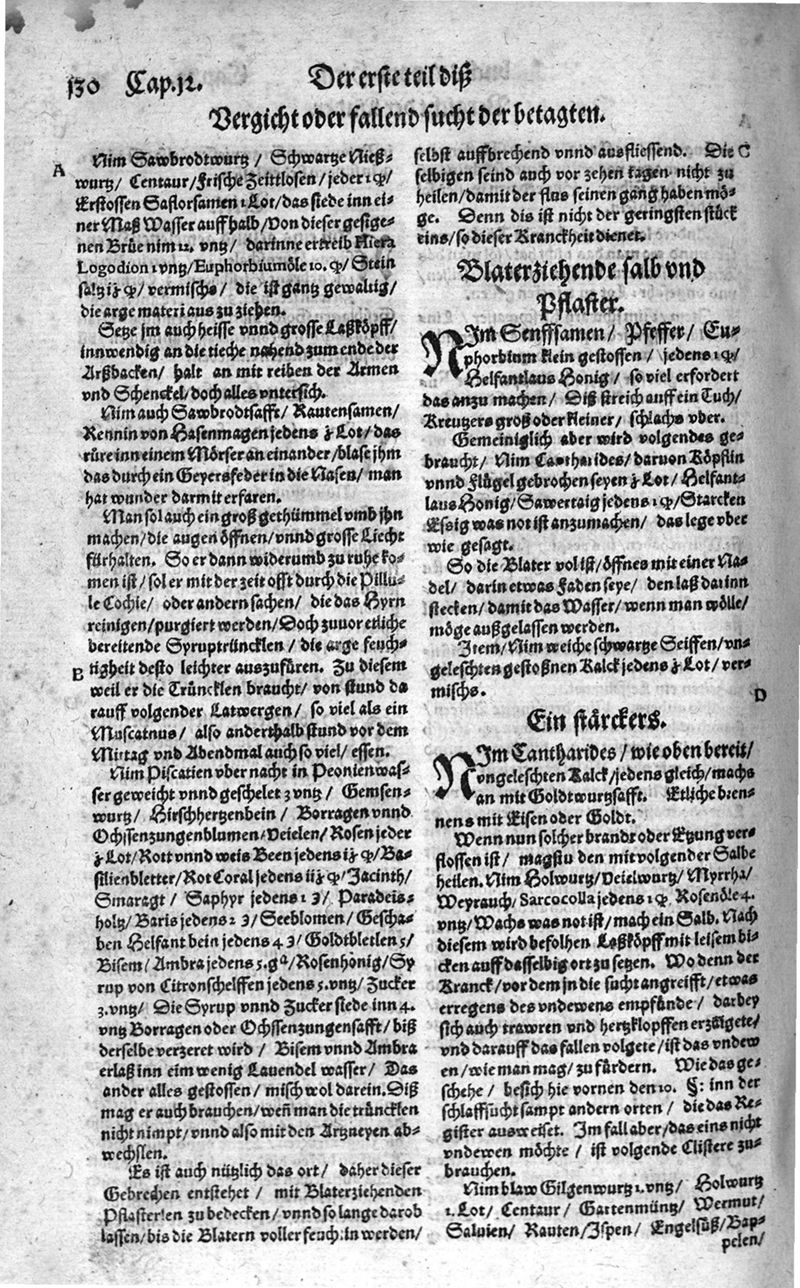 130 Cap.12. Der erste teil diß
Vergicht oder fallend sucht der betagten.
A
Nim Sawbrodtwurtz / Schwartze Nieß-
wurtz / Centaur / frische Zeittlosen / jeder 1 φ /
Erstossen Saflorsamen 1 Lot / das siede inn ei-
ner Maß Wasser auff halb / Von dieser gesige-
nen Brüe nim 12. vntz / darinne ertreib Hiera
Logodion 1 vntz / Euphorbiumöle 10. φ / Stein
saltz ij φ / vermischs / die ist gantz gewaltig /
die arge materi aus zu ziehen.
Setze jm auch heisse vnnd grosse Laßköpff /
innwendig an die tieche nahend zum ende der
Arßbacken / halt an mit reiben der Armen
vnd Schenckel / doch alles vntersich.
Nim auch Sawbrodtsafft / Rautensamen /
Rennin von Hasenmagen jedens ʒ Lot / das
rüre inn einem Mörser an einander / blase jhm
das durch ein Geyersfeder in die Nasen / man
hat wunder darmit erfaren.
Man sol auch ein groß gethümmel vmb jhn
machen / die augen öffnen / vnnd grosse Liecht
fürhalten. So er dann widerumb zu ruhe ko-
men ist / sol er mit der zeit offt durch die Pillu-
le Cochie / oder andern sachen / die das Hyrn
reinigen / purgiert werden / Doch zuuor etliche
bereitende Syruptrüncklen / die arge feuch-
B
tigheit desto leichter auszufüren. Zu diesem
weil er die Trüncklen braucht / von stund da
rauff volgender Latwergen / so viel als ein
Muscatnus / also anderthalb stund vor dem
Mittag vnd Abendmal auch so viel / essen.
Nim Piscatien vber nacht in Peonienwas-
ser geweicht vnnd geschelet 3 vntz / Gemsen-
wurtz / Hirschhertzenbein / Borragen vnnd
Ochssenzungenblumen / Veielen / Rosen jeder
ʒ Lot / Rott vnnd weis Been jedens ij φ / Ba-
silienbletter / Rot Coral jedens iij φ / Jacinth /
Smaragt / Saphyr jedens 1 ℈ / Paradeis-
holtz / Baris jedens 2 ℈ / Seeblomen / Gescha-
ben Helfant bein jedens 4 ℈ / Goldtbletlen 5 /
Bisem / Ambra jedens 5. gª / Rosenhönig / Sy
rup von Citronschelffen jedens 5. vntz / Zucker
3. vntz / Die Syrup vnnd Zucker siede inn 4.
vntz Borragen oder Ochssenzungensafft / biß
derselbe verzeret wird / Bisem vnnd Ambra
erlaß inn ein wenig Lauendel wasser / Das
ander alles gestossen / misch wol darein. Diß
mag er auch brauchen / weñ man die trüncklen
nicht nimpt / vnnd also mit den Artzneyen ab-
wechslen.
Es ist auch nützlich das ort / daher dieser
Gebrechen entstehet / mit Blaterziehenden
Pflasterlen zu bedecken / vnnd so lange darob
lassen / bis die Blatern voller feuchtin werden /
selbst auffbrechend vnnd ausfliessend. Die C
selbigen seind auch vor zehen tagen nicht zu
heilen / damit der flus seinen gang haben mö-
ge. Denn dis ist nicht der geringsten stück
eins / so dieser Kranckheit dienet.
Blaterziehende salb vnd
Pflaster.
NIm Senffsamen / Pfeffer / Eu-
phorbium klein gestossen / jedens 1 φ /
Helfantlaus Honig / so viel erfordert
das anzu machen / Diß streich auff ein Tuch /
Kreutzers groß oder kleiner / schlachs vber.
Gemeiniglich aber wird volgendes ge-
braucht / Nim Cantharides / daruon Köpflin
vnnd Flügel gebrochen seyen ʒ Lot / Helfant-
laus Honig / Sawertaig jedens 1 φ / Starcken
Essig was not ist anzumachen / das lege vber
wie gesagt.
So die Blater vol ist / öffnes mit einer Na-
del / darin etwas Faden seye / den laß darinn
stecken / damit das Wasser / wenn man wölle /
möge außgelassen werden.
Item / Nim weiche schwartze Seiffen / vn-
geleschten gestoßnen Kalck jedens ʒ Lot / ver-
mischs.
D
Ein stärckers.
NIm Cantharides / wie oben bereit /
vngeleschten Kalck / jedens gleich / machs
an mit Goldtwurtzsafft. Etliche bren-
nens mit Eisen oder Goldt.
Wenn nun solcher brandt oder Etzung ver-
flossen ist / magstu den mit volgender Salbe
heilen. Nim Holwurtz / Veielwurtz / Myrrha /
Weyrauch / Sarcocolla jedens 1 φ. Rosenöle 4.
vntz / Wachs was not ist / mach ein Salb. Nach
diesem wird befolhen Laßköpff mit leisem bi-
cken auff dasselbig ort zu setzen. Wo denn der
Kranck / vor dem jn die sucht angreifft / etwas
erregens des vndewens empfünde / darbey
sich auch trawren vnd hertzklopffen erzeigete /
vnd darauff das fallen volgete / ist das vndew
en / wie man mag / zu fürdern. Wie das ge-
schehe / besich hie vornen den 10. §: inn der
schlaffsucht sampt andern orten / die das Re-
gister ausweiset. Im fall aber / das eins nicht
vndewen möchte / ist volgende Clistere zu-
brauchen.
Nim blaw Gilgenwurtz 1. vntz / Holwurtz
1. Lot / Centaur / Gartenmüntz / Wermut /
Saluien / Rauten / Ispen / Engelsüß / Bap-
pelen /